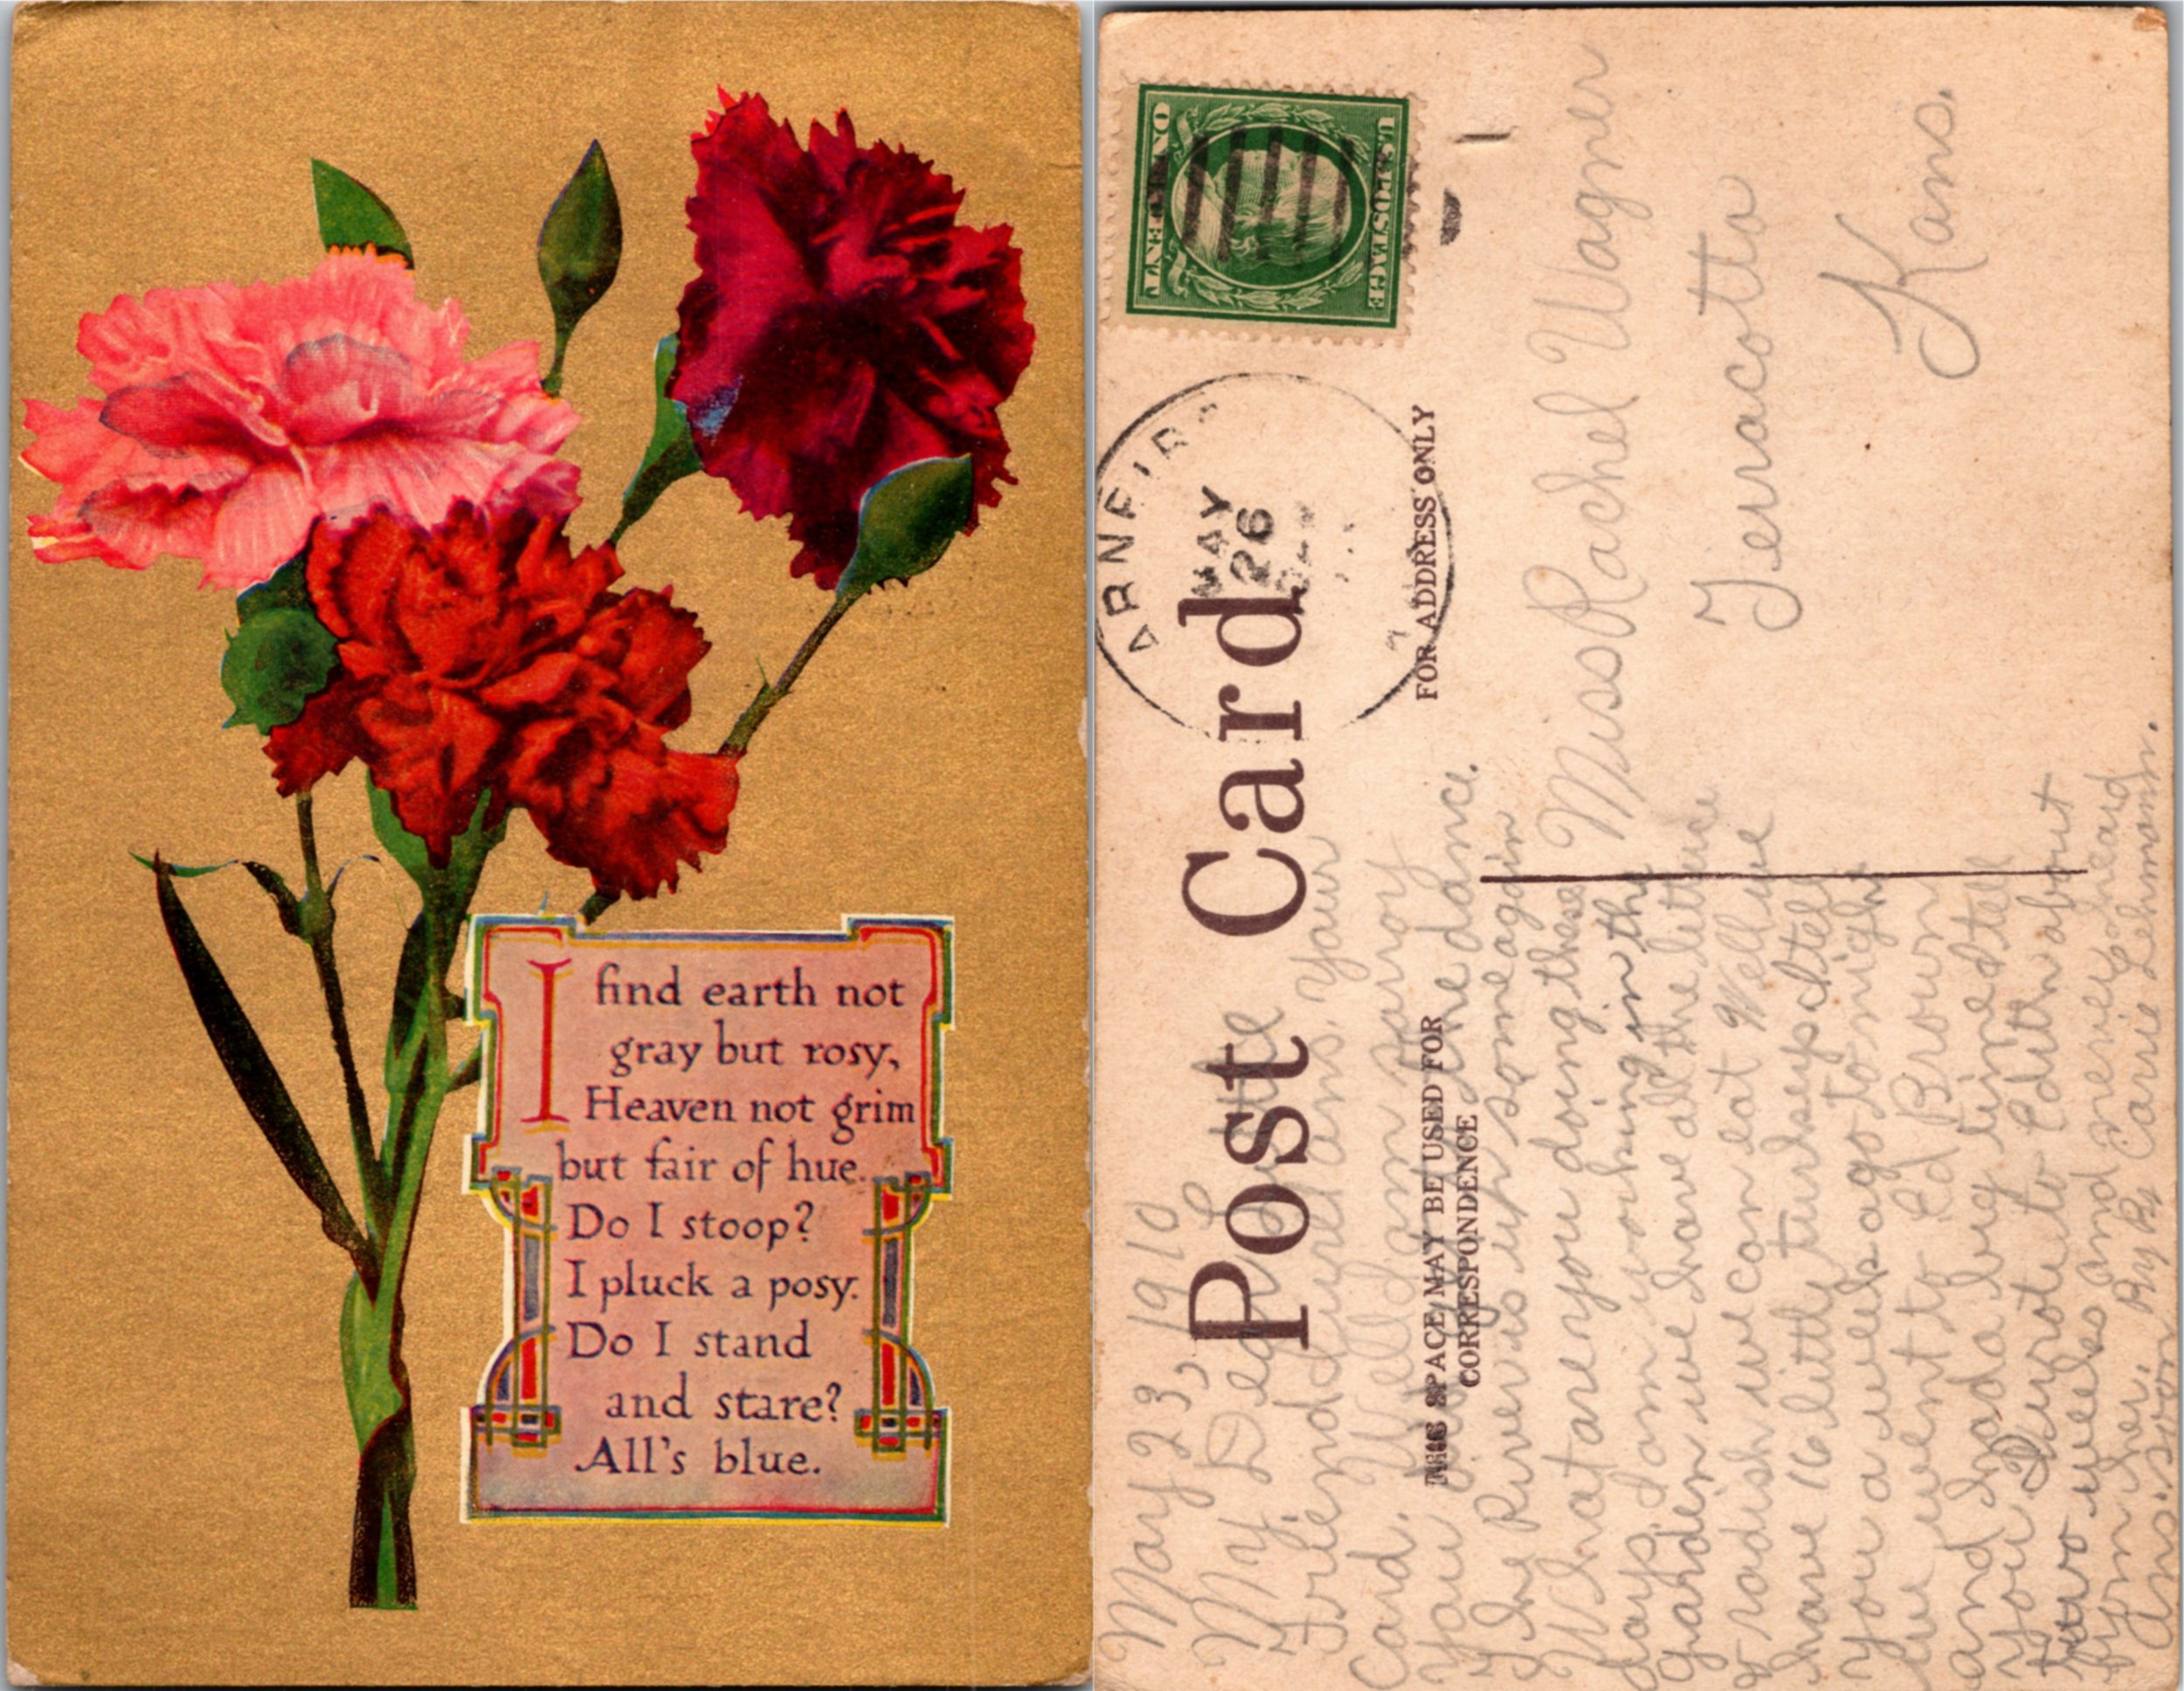 I find earth not
gray but rosy,
Heaven not grim
but fair of hue.
Do I stoop?
I pluck a posy.
Do I stand
and stare?
All's blue.
ONE CENT
U.S. POSTAGE
MAY
26
Post Card
THIS SPACE MAY BE USED FOR
CORRESPONDENCE
FOR ADDRESS ONLY
Miss Rachel Wagner
Terracotta
Kans.
May 23, 1910
My Dear little
Friend. I will ans. your
Card. Well am sorry
you the dance.
The River is up some again
What are you doing these
days, I am working in the
Garden we have all the lettuce
& radish we can eat Well we
have 16 little turkeys I tell
you a week ago to night
we went to Ed Brown
and had a big time I tell
you I wrote to Edith about
two weeks and never heard
from her. By By Carrie Lehmann.
ans. soon